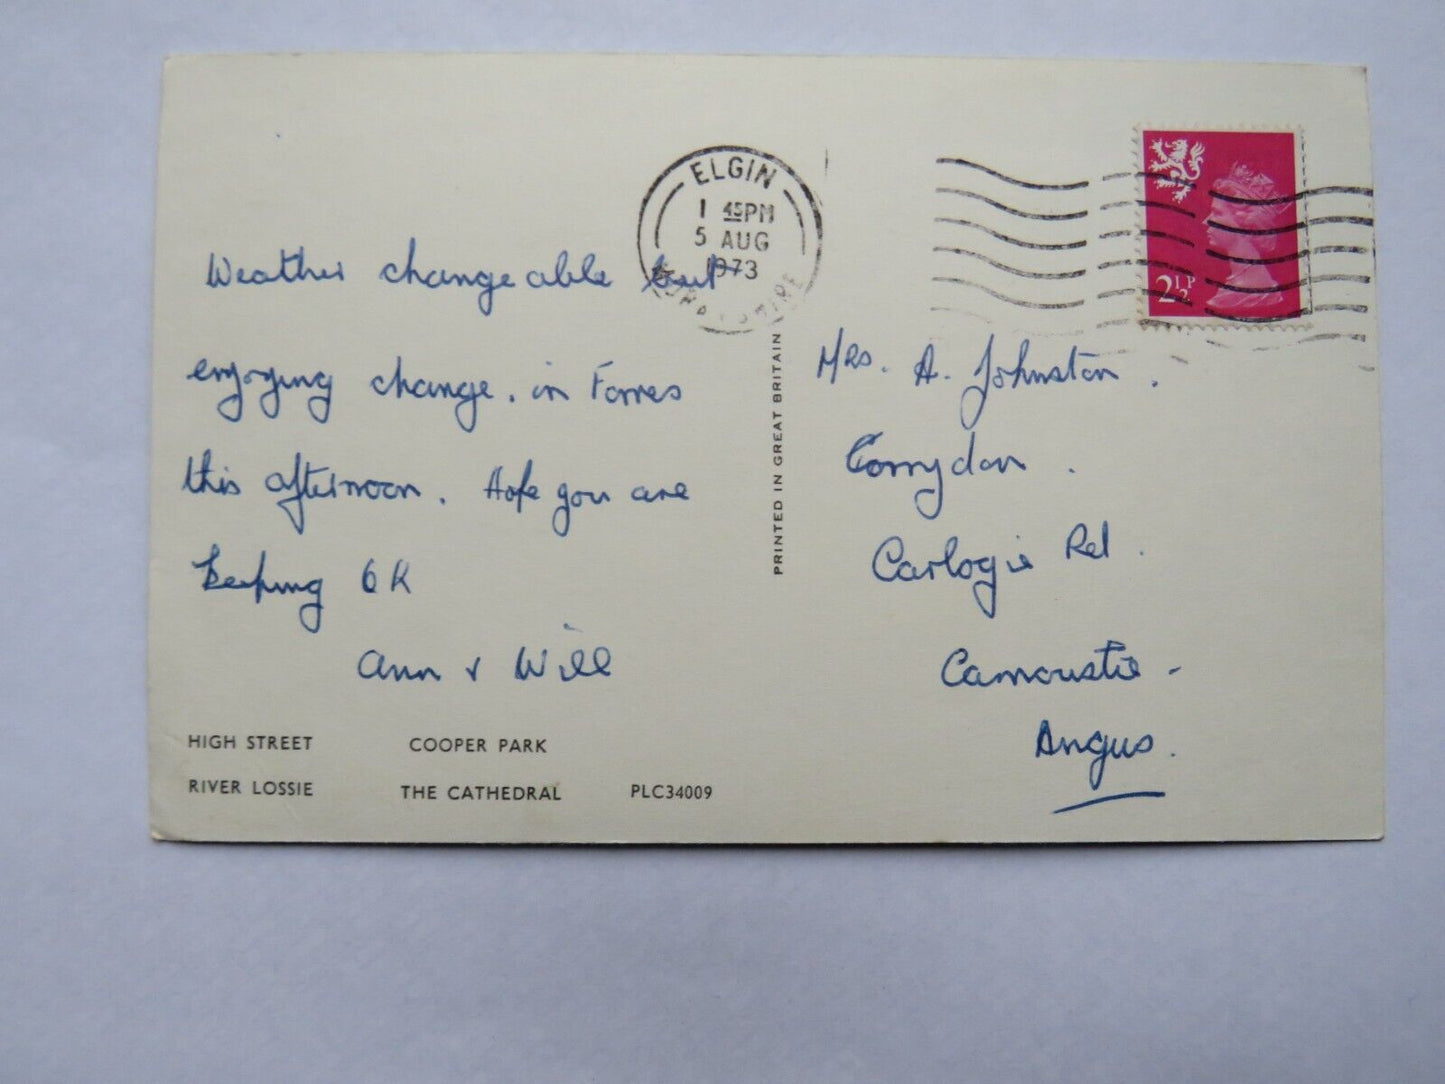 ELGIN
1 45PM
5 AUG
1973
MORAYSHIRE
2½P
Weather changeable but
enjoying change. in Forres
this afternoon. Hope you are
keeping OK
Ann + Will
HIGH STREET COOPER PARK
RIVER LOSSIE THE CATHEDRAL PLC34009
PRINTED IN GREAT BRITAIN
Mrs. A. Johnston.
Corrydon.
Carlogie Rd.
Carnoustie -
Angus.